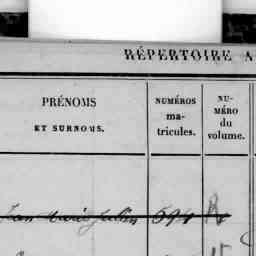 RÉPERTOIRE A
PRÉNOMS
ET SURNOMS.
NUMÉROS
ma-
tricules.
NU-
MÉRO
du
volume.
Jean Marie Julien 594 R